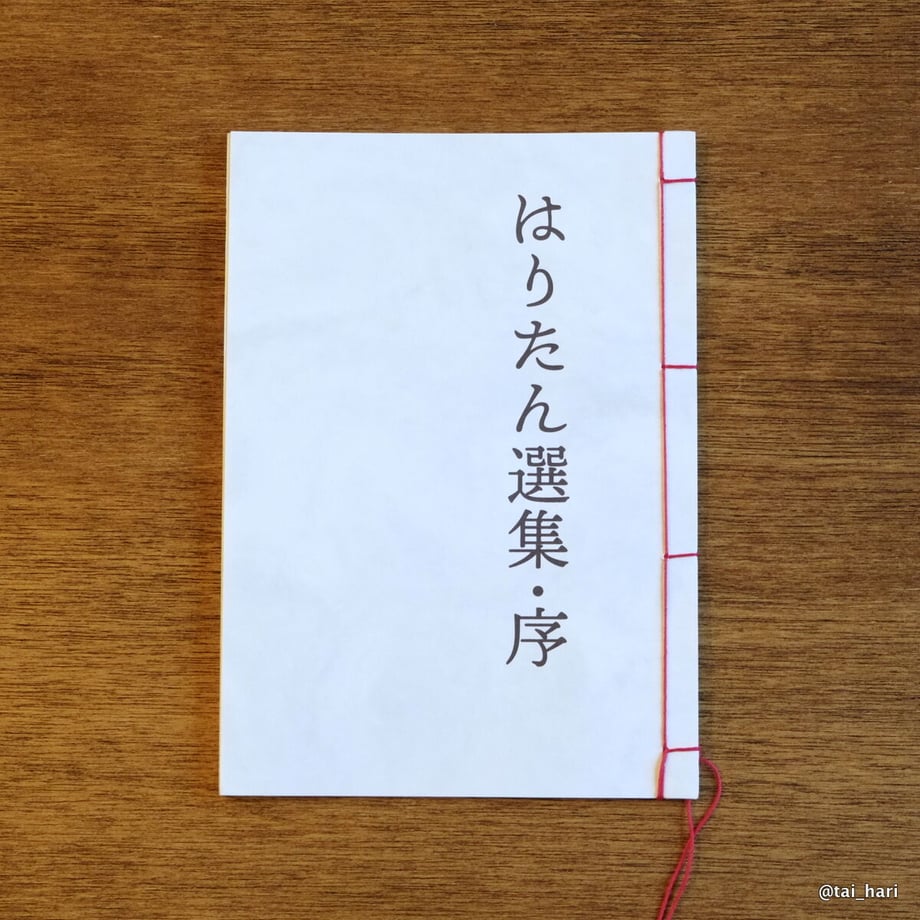 はりたん選集・序
@tai_hari